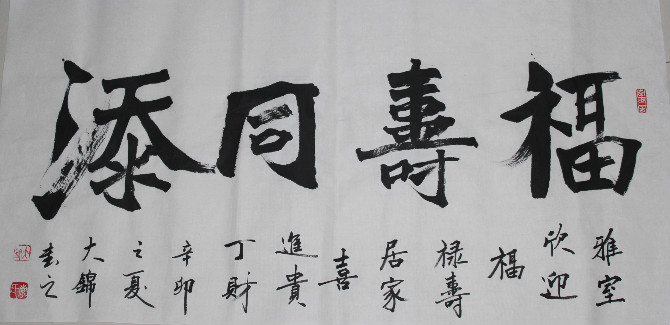 福壽同添
雅室
欣迎
福
禄壽
居家
喜
進貴
丁財
辛卯
之夏
大錦
書之